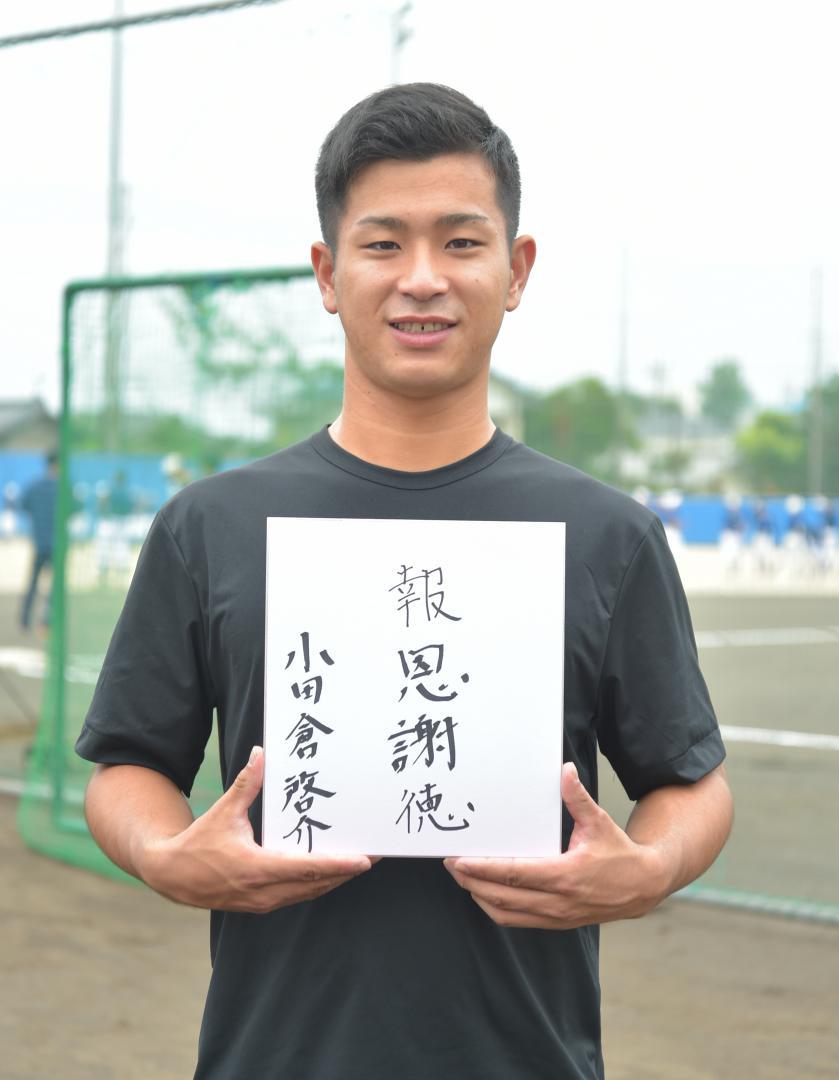 報恩謝徳
小田倉啓介